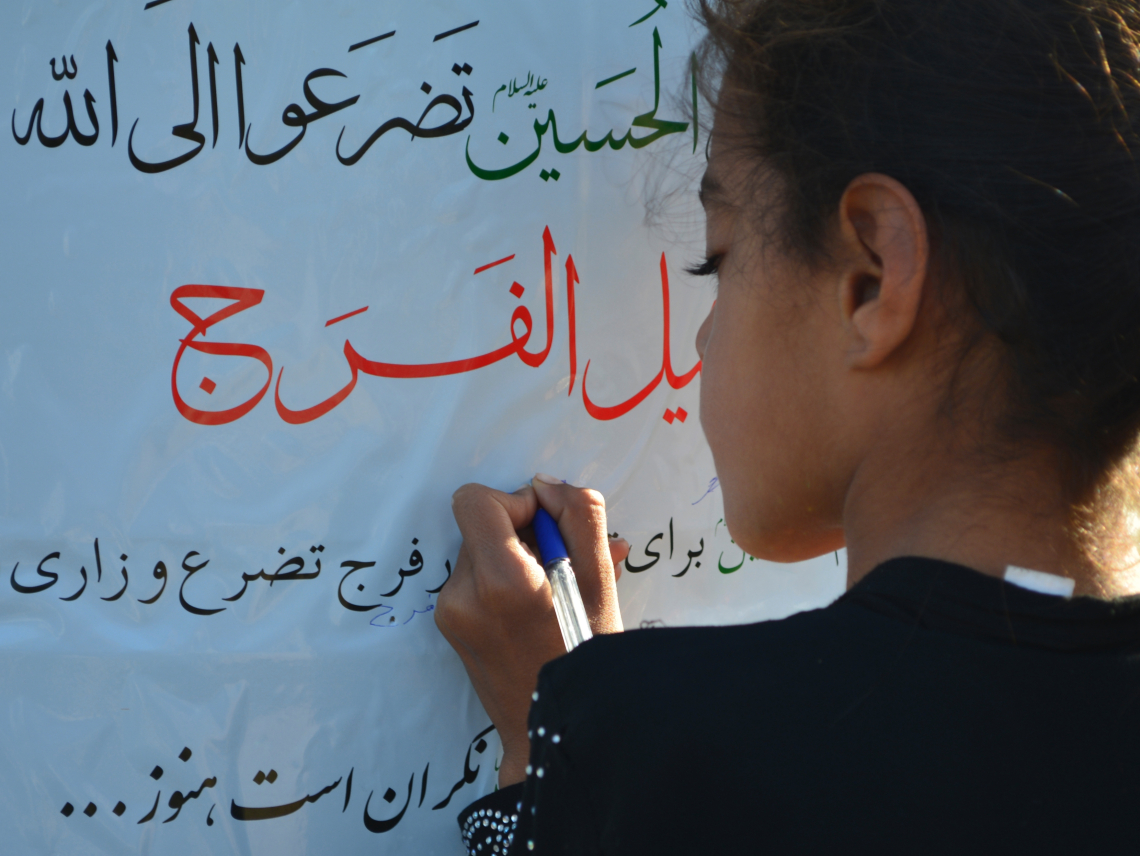 الحُسَین علیه‌السلام تَضَرَعوا الَی الله
یل الفَرَج
برای
ر فرج تضرع و زاری
فرج
نگران است هنوز...